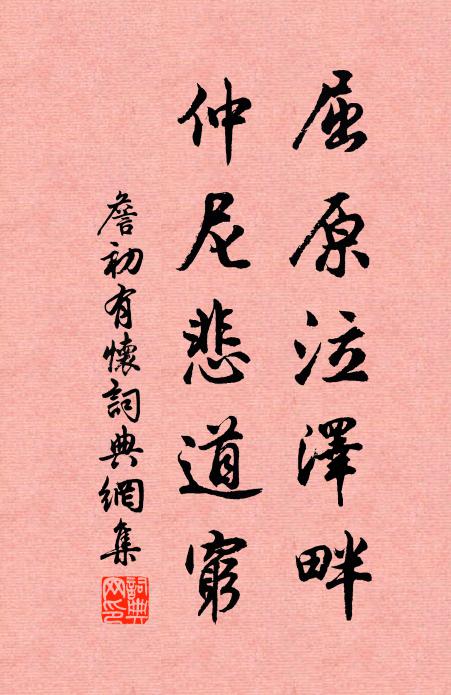 屈原泣澤畔
仲尼悲道窮
詹初有懷詞典網集
詞典
网印